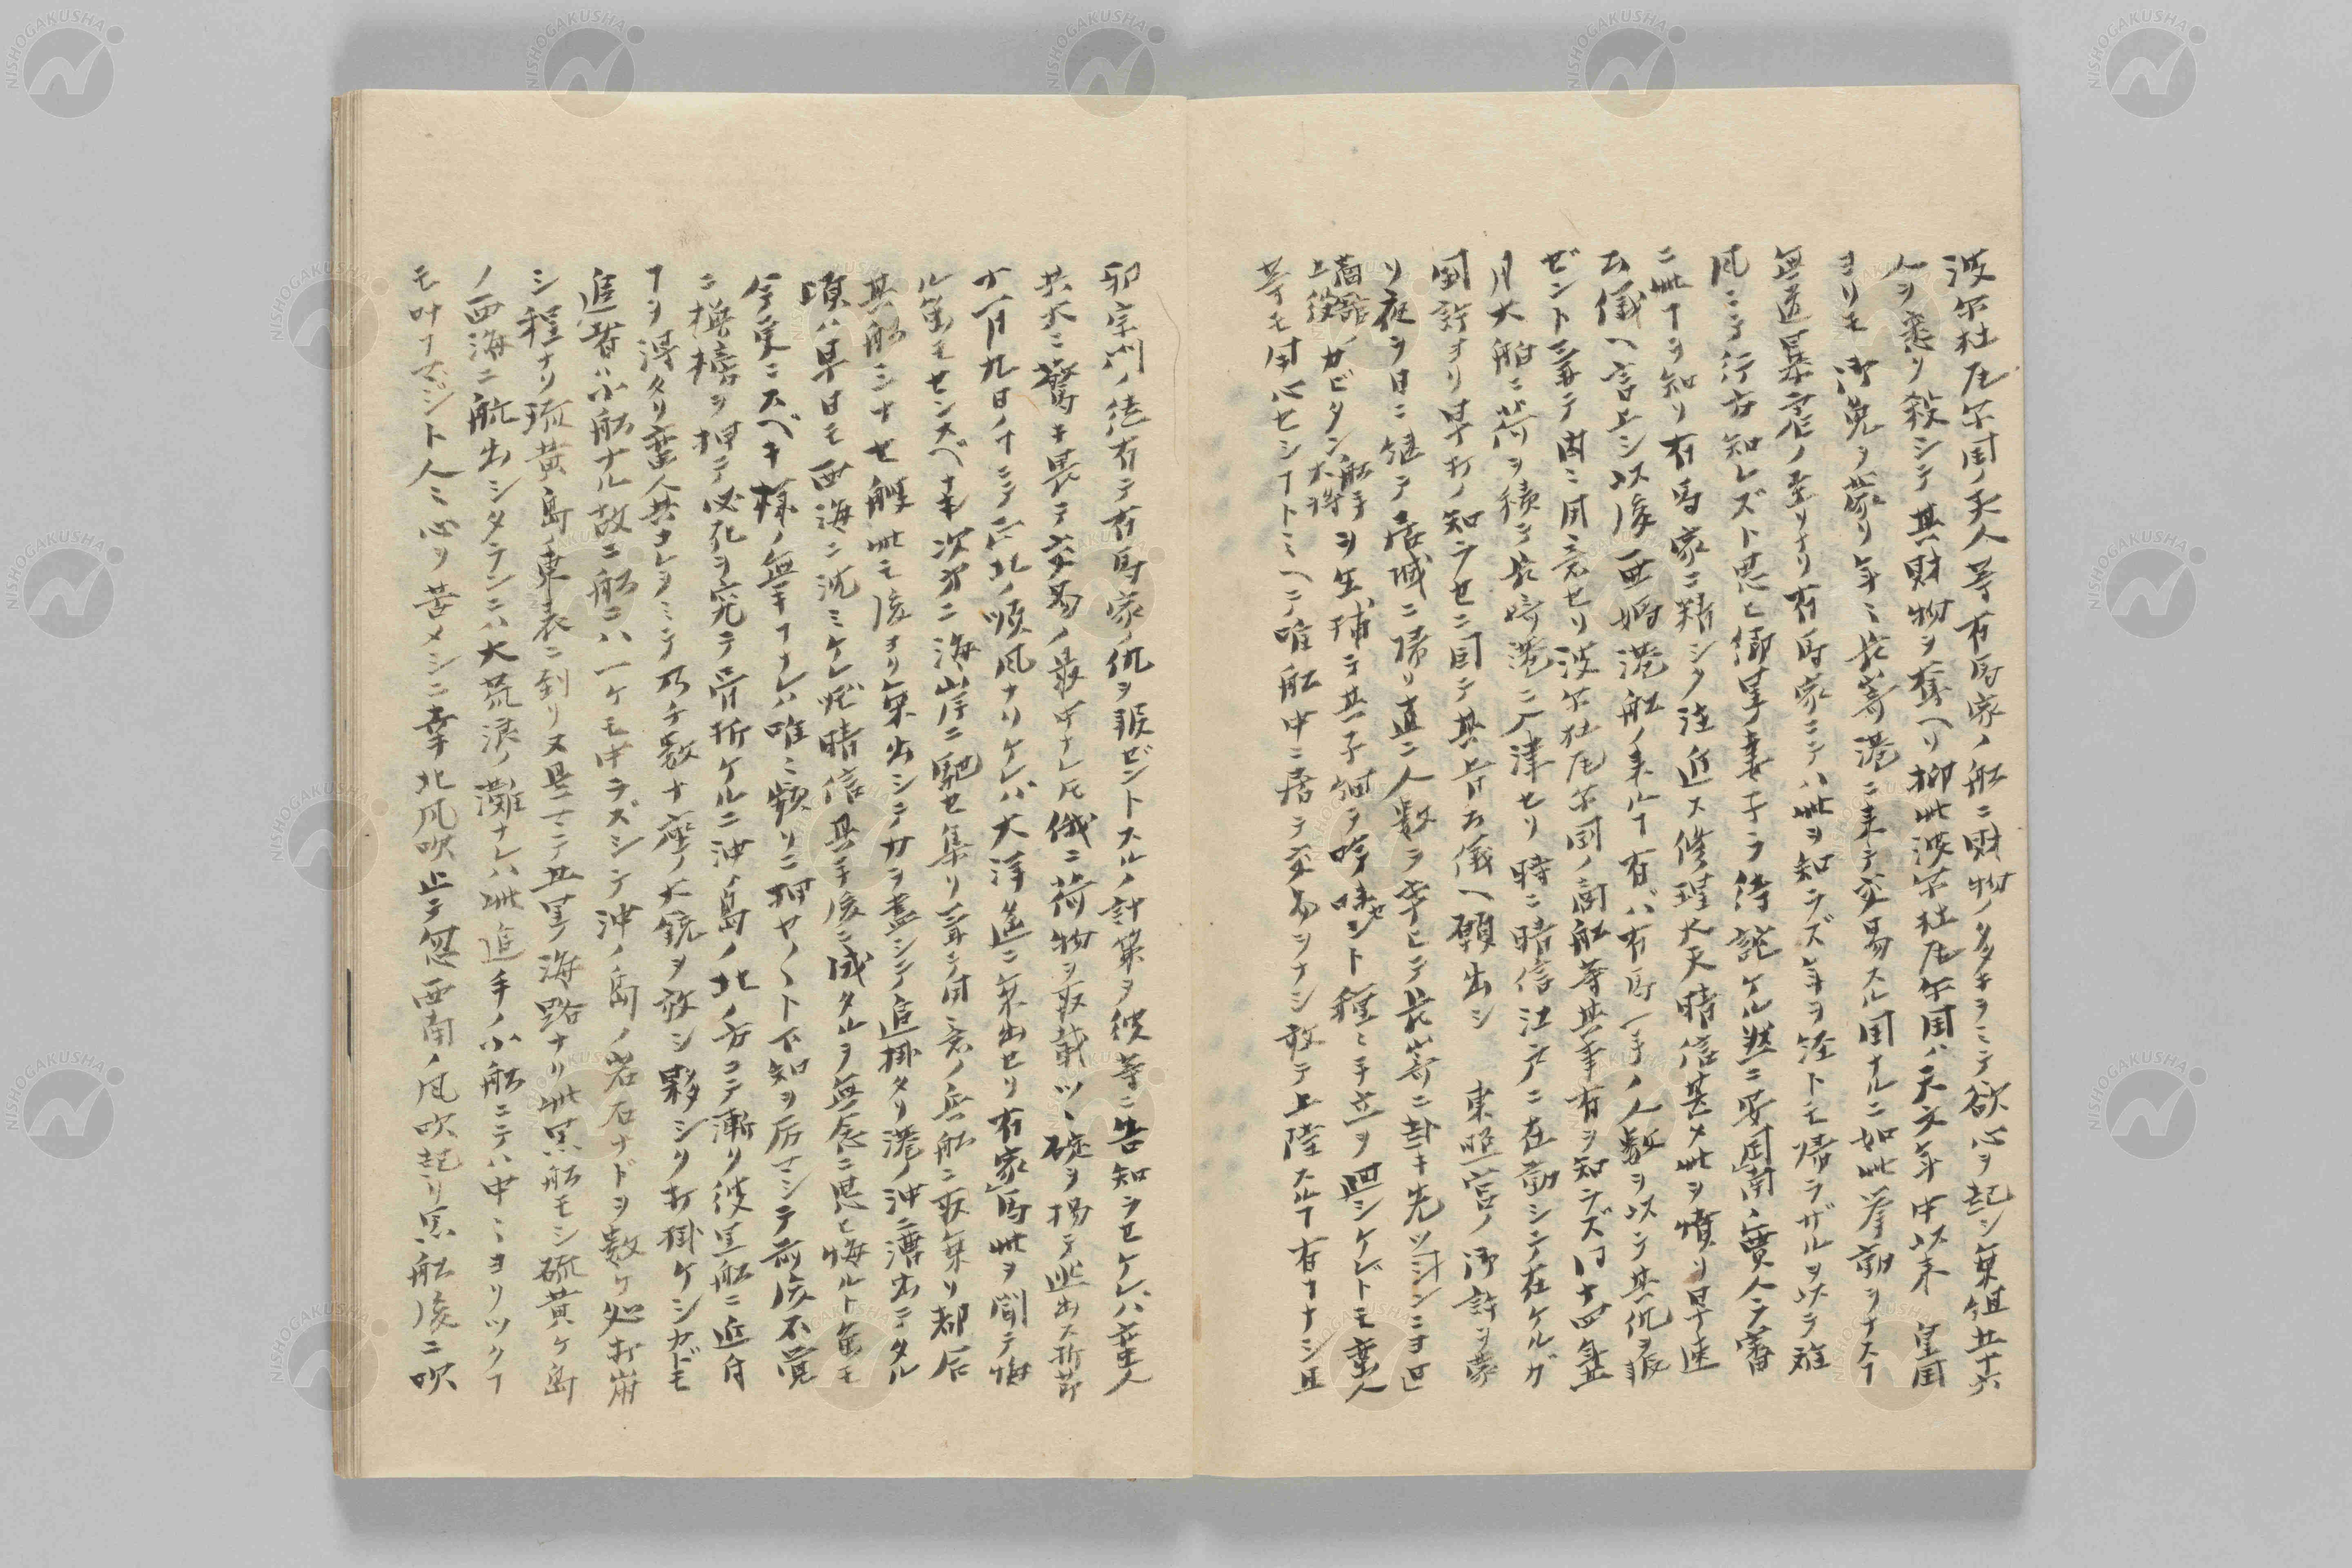 波尔杜瓦尔国ノ夫人等有馬家ノ舩ニ財物ノ多キヲミテ欲心ヲ起シ乗組五十六
人ヲ悉ク殺シテ其財物ヲ奪ヘリ抑此波尔杜瓦尔国ハ天文年中以来 皇国
ヨリモ 御免ヲ蒙リ年ミ長嵜港ニ来テ交易スル国ナルニ如此挙動ヲナスヿ
無道暴虐ノ至リナリ有馬家ニテハ此ヲ知ラズ年ヲ経トモ帰ラザルヲ以テ難
風ニテ行方知レズト思ヒ
ニ此ヿヲ知リ有馬家ニ精シク注進ス修理大夫晴信甚タ此ヲ憤リ早速
公儀ヘ言上シ以後西媽港舩ノ来ルヿ有バ有馬一手ノ人数ヲ以テ其仇ヲ報
ゼント募テ内ミ用意セリ波尔杜瓦尔国ノ商舩等其事有ヲ知ラズ同十四年
月大舶ニ荷ヲ積テ長崎港ニ入津セリ時ニ晴信江戸ニ在勤シテ在ケルガ
国許ヨリ早打ノ知ラセニ因テ其旨公儀ヘ願出シ 東照宮ノ御許ヲ蒙
リ夜ヲ日ニ継テ居城ニ帰リ直ニ人数ヲ率ヒテ長嵜ニ赴キ先ツ
商舘ノカピタン舩手ヲ生捕テ其子細ヲ吟味セント種ミ手立ヲ廻シケレドモ蛮人
上役 大将
等モ用心セシヿトミヘテ唯舩中ニ居テ交易ヲナシ敢テ上陸スルヿ有ナナシ且
邪宗門ノ徒有テ有馬家ノ仇ヲ報ゼントスルノ計策ヲ彼等ニ告知ラセケレバ蛮人
共大ニ驚キ畏テ交易ノ最中ナレ𪜈俄ニ荷物ヲ取載ツヽ碇ヲ揚テ逃出ス折節
十一月九日ノヿニテ正北ノ順風ナリケレバ大洋遙ニ乗出セリ有家馬此ヲ聞テ悔
ル
其舩ミナ七艘此モ後ヨリ乗出シテ力ヲ盡シテ追掛タリ港ノ沖ニ漕出テタル
頃ハ早日モ西海ニ沈ミケレ𪜈晴信其手後ニ成タルヲ無念ニ思ヒ悔ルト雖モ
今更ニスベキ様ノ無キヿナレハ唯ミ頻リニ押ヤ〳〵ト下知ヲ
ニ横ヲ押テ必死ヲ究テ骨折ケルニ沖ノ島ノ北ノ方ニテ漸ク彼黒舩ニ近付
ヿヲ得タリ蛮人共コレヲミテ乃チ数十座ノ大銃ヲ放シ夥シク打掛ケシカドモ
追者ハ小舩ナル故ニ舩ニハ一ケモ中ラズシテ沖ノ島ノ岩石ナドヲ数ケ処打崩
シ程ナク琉黄島ノ東表ニ到リヌ是マテ五里ノ海路ナリ此黒舩モシ硫黄ケ島
ノ西海ニ航出シタランニハ大荒浪ノ灘ナレハ此追手ノ小舩ニテハ中ミヨリツクヿ
モ叶ナマジト人ミ心ヲ苦メシニ幸北風吹止テ忽西南ノ風吹起リ黒舩後ニ吹